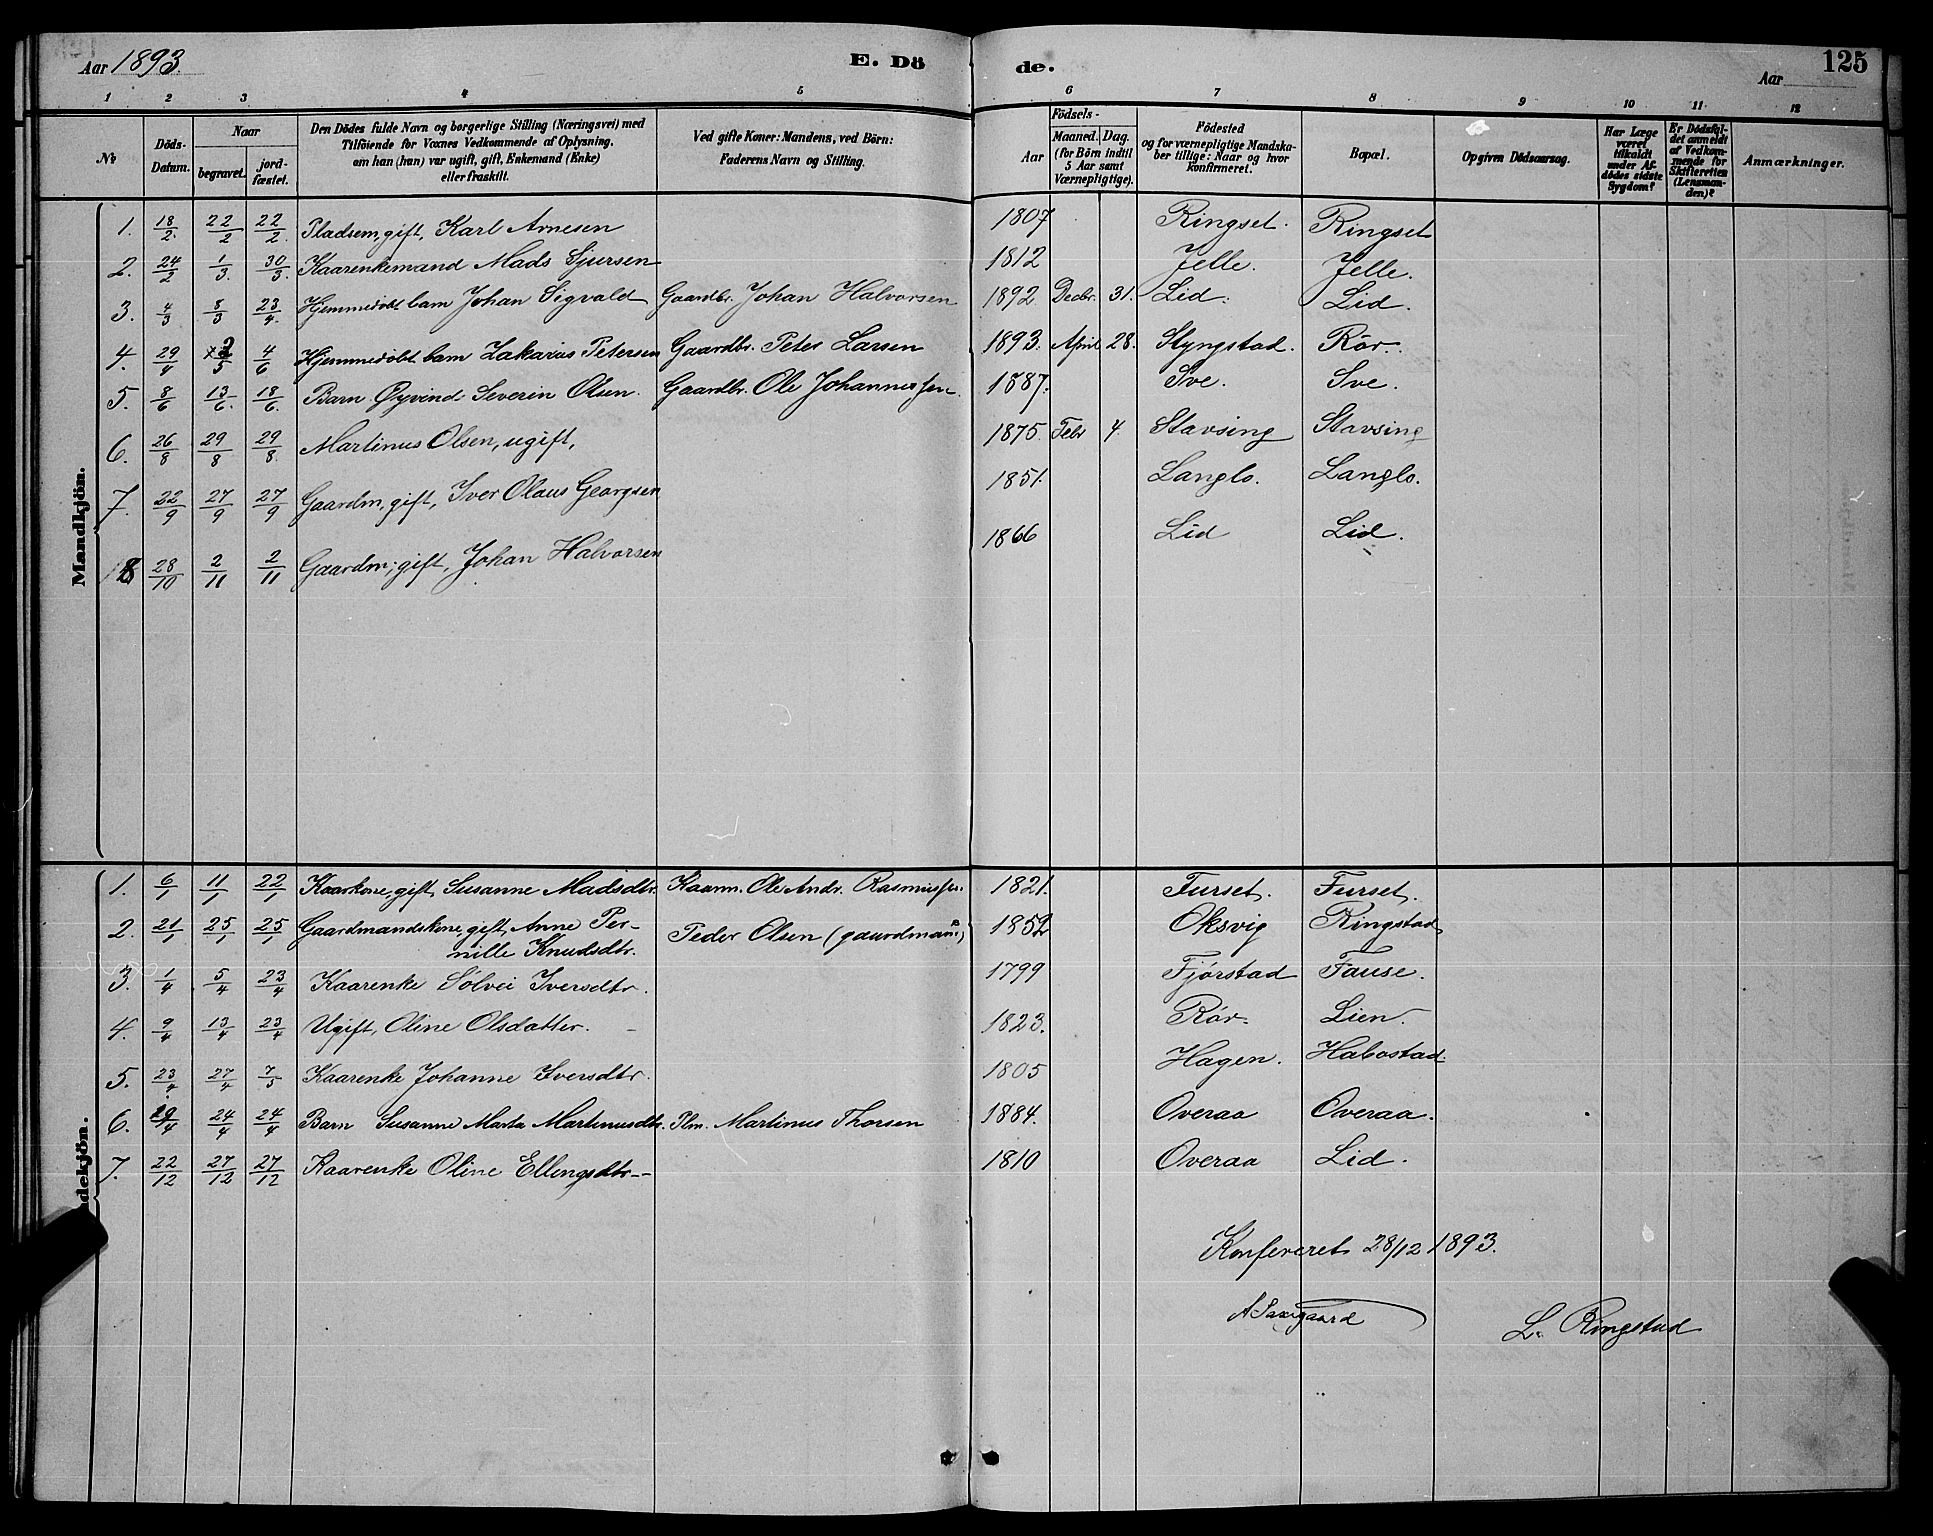 Aar 1893. E. Dö de. Aar 125
1 2 3 4 5 6 7 8 9 10 11 12
No
Döds-Datum.
Naar
begravet.
jord-fæstet.
Den Dödes fulde Navn og borgerlige Stilling (Næringsvei) med
Tilföiende for Voxnes Vedkommende af Oplysning,
om han (hun) var ugift, gift, Enkemand (Enke)
eller fraskilt.
Ved gifte Koner: Mandens, ved Börn:
Faderens Navn og Stilling.
Födsels-
Aar
Maaned. Dag.
(for Börn indtil
5 Aar samt
Værnepligtige).
Födested
og for værnepligtige Mandska-
ber tillige: Naar og hvor
konfirmeret.
Bopæl.
Opgiven Dödsaarsag.
Har Læge
været
tilkaldt
under Af-
dödes sidste
Sygdom?
Er Dödsfal-
det anmeldt
af Vedkom-
mende for
Skifteretten
(Lensman-
den)?
Anmærkninger.
Mandkjön.
1. 18/2. 22/2 22/2. Pladsem, gift, Karl Arnesen 1807 Ringset. Ringset
2. 24/2 1/3. 30/3. Kaarenkemand Mads Sjursen 1812 Jelle. Jelle.
3. 4/3 8/3 23/4. Hjemmedøbt barn Johan Sigvald Gaardbr. Johan Halvorsen 1892. Decbr. 31. Lid. Lid.
4. 29/4 2/5 4/6 Hjemmedøbt barn Zakarias Petersen Gaardbr. Peter Larsen 1893. April 28. Slyngstad. Rör.
5. 8/6 13/6. 18/6. Barn Øyvind Severin Olsen. Gaardbr. Ole Johannessen 1887. Sve. Sve.
6. 26/8 29/8 29/8. Martinus Olsen, ugift, 1875. Febr 4. Stavsing Stavsing
7. 22/9 27/9 27/9 Gaardm, gift, Iver Olaus Georgsen 1851. Langlo. Langlo.
8 28/10 2/11 2/11 Gaardm; gift, Johan Halvorsen 1866 Lid Lid.
ndekjön.
1. 6/1 11/1 22/1 Kaarkone, gift, Susanne Madsdtr. Kaarm. Ole Andr. Rasmussen. 1821. Furset. Furset.
2. 21/1 25/1 25/1 Gaardmandskone, gift, Anne Per- Peder Olsen (gaardmand) 1852 Oksvig Ringstad
nille Knudsdtr.
3. 1/4 5/4 23/4 Kaarenke Sølvei Iversdtr. 1799 Fjörstad Fause.
4. 9/4 13/4 23/4 Ugift, Oline Olsdatter. 1823. Rör. Lien.
5. 23/4 27/4 7/5 Kaarenke Johanne Iversdtr. 1805 Hagen. Habostad.
6. 19/4 24/4 24/4 Barn Susanne Marta Martinusdtr. Plm. Martinus Thorsen 1884. Overaa Overaa.
7. 22/12 27/12 27/12 Kaarenke Oline Ellingsdtr-- 1810 Overaa Lid.
Konfereret 28/12 1893.
A Saxegaard
L. Ringstad